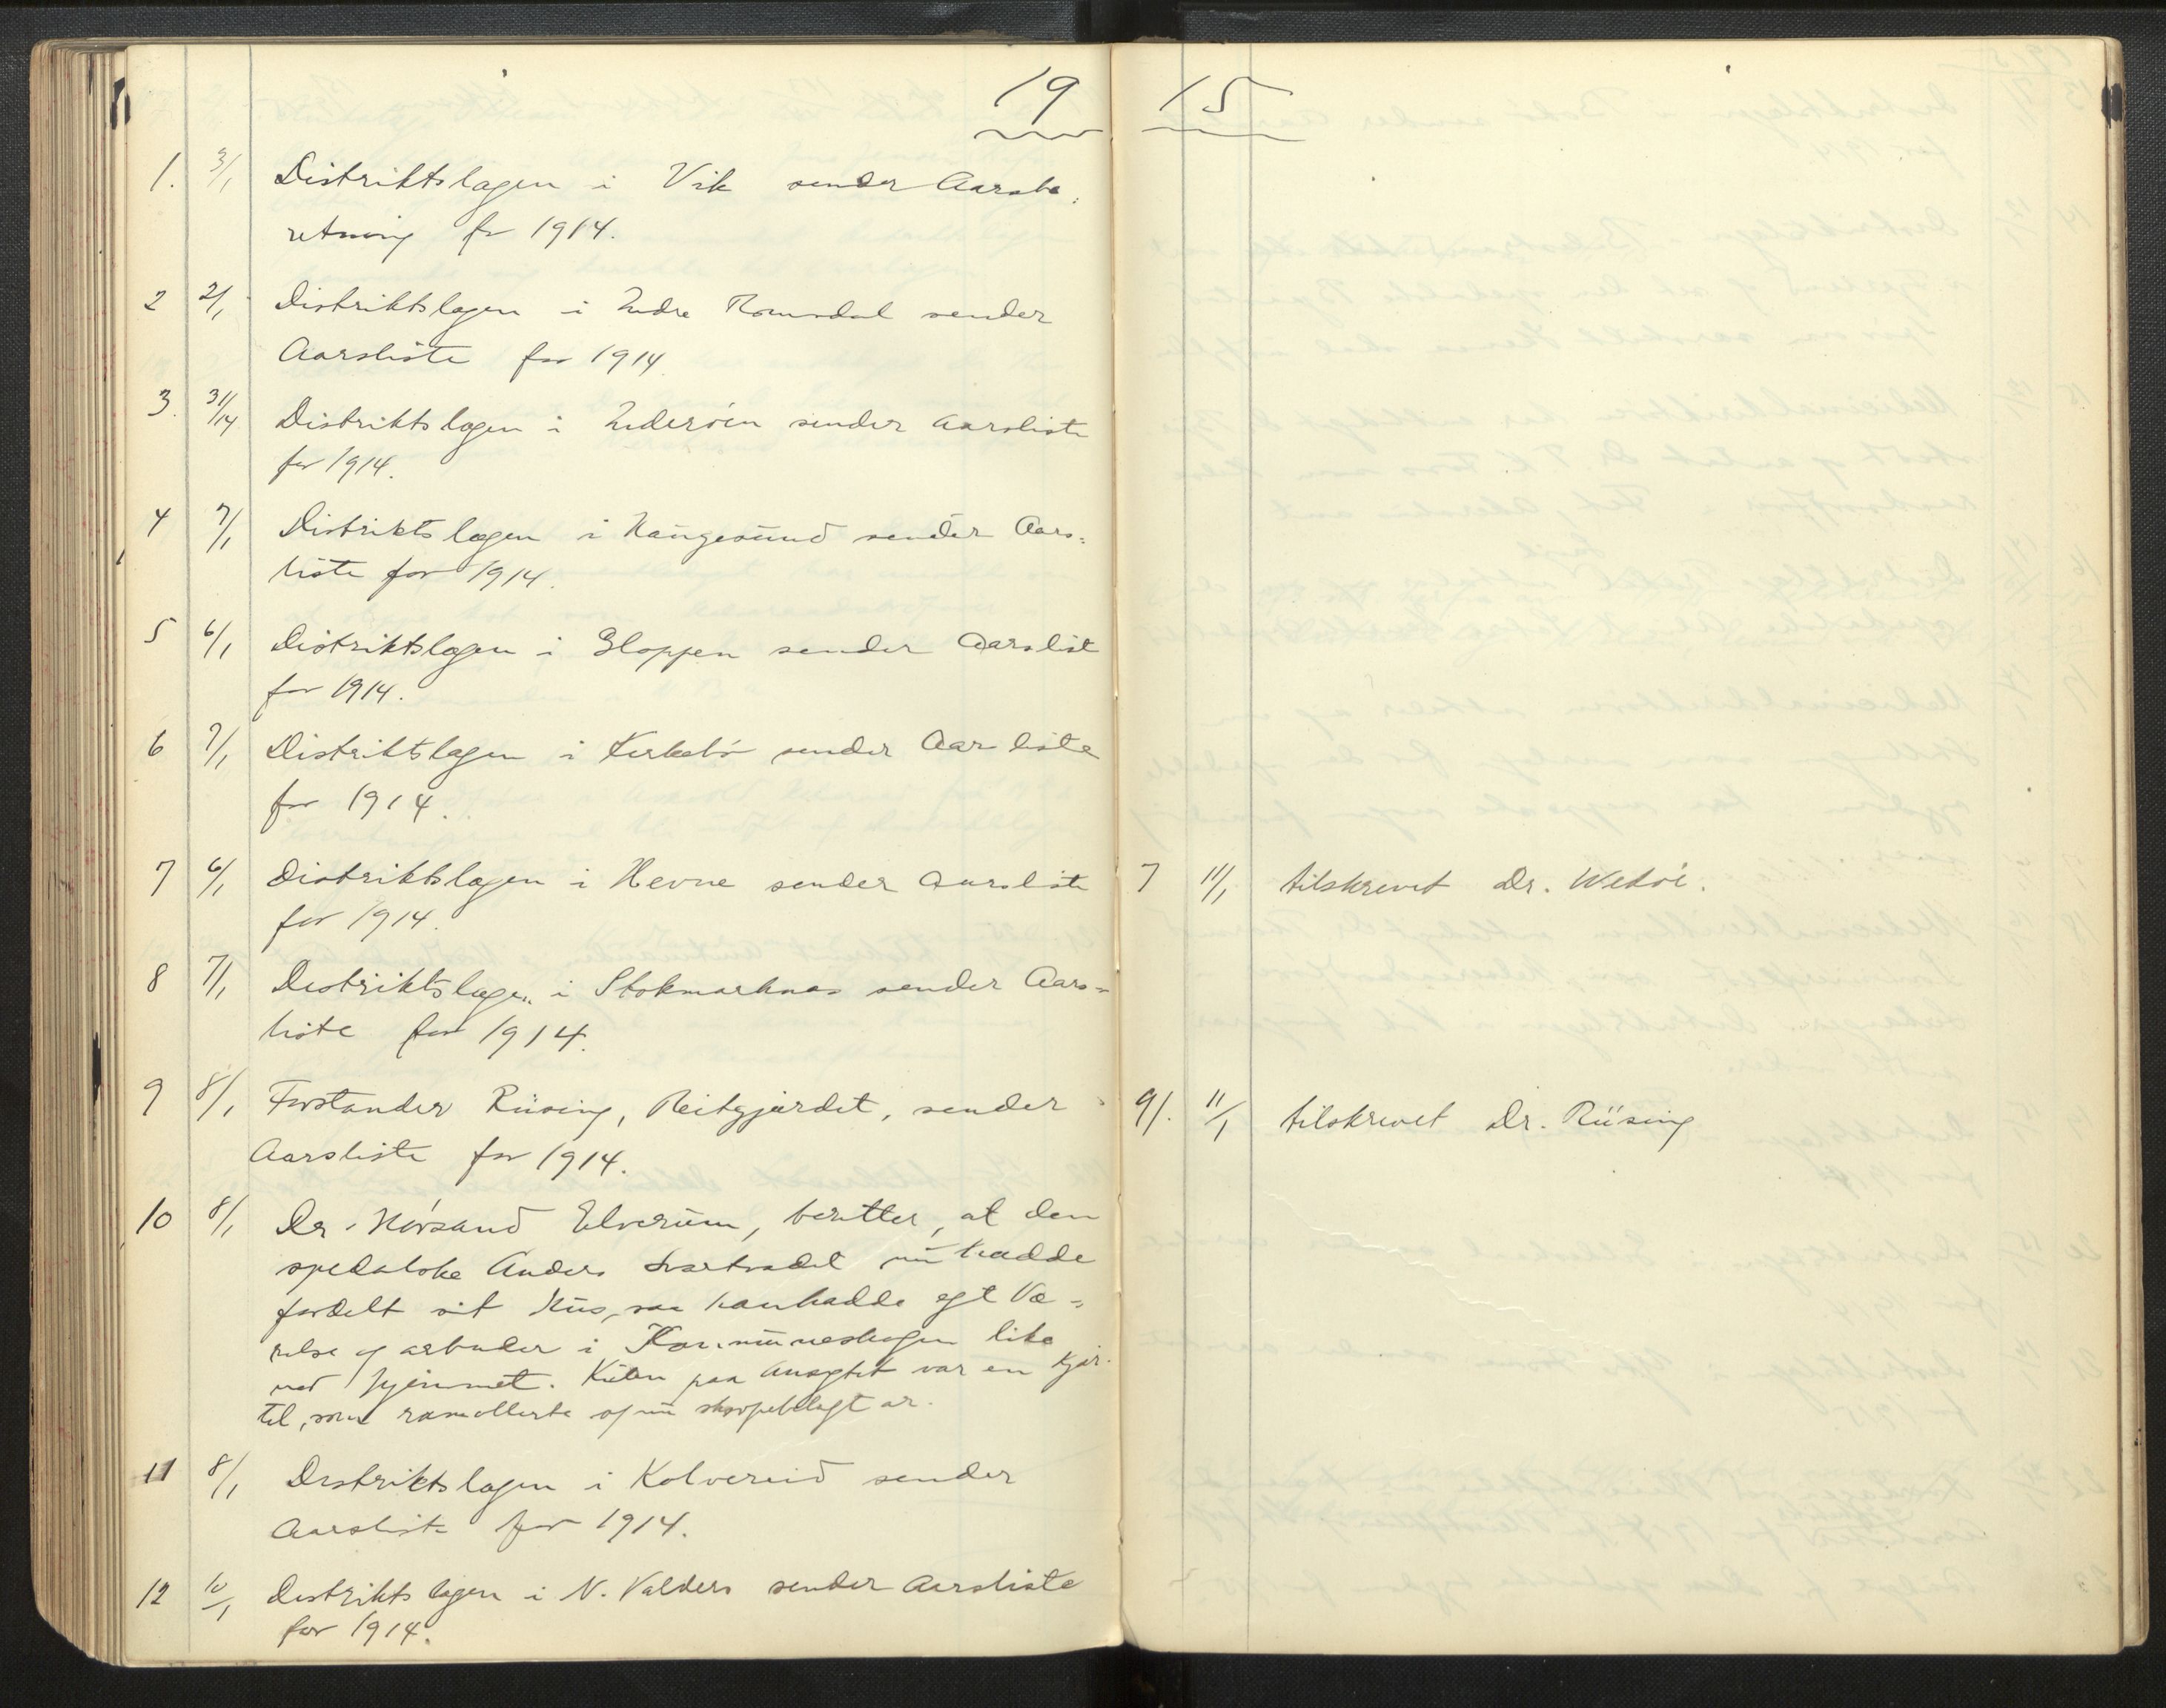 1915
1. 3/1 Distriktslægen i Vik sender Aarsbe:
retning for 1914.
2 2/1 Distriktslægen i Indre Romsdal sender
Aarsliste for 1914
3. 31/14 Distriktslægen i Inderöen sender Aarsliste
for 1914.
4 7/1 Distriktslægen i Haugesund sender Aars:
liste for 1914.
5 6/1 Distriktslægen i Gloppen sender Aarsliste
for 1914.
6 7/1 Distriktslægen i Kirkebö sender Aarsliste
for 1914.
7 6/1 Distriktslægen i Hevne sender Aarsliste
for 1914.
8 7/1 Distriktslægen i Stokmarknes sender Aars=
liste for 1914.
9 8/1 Forstander Rüsing, Reitgjærdet, sender
Aarsliste for 1914.
10 8/1 Dr. Hörsand Elverum, beretter, at den
spedalske Anders nu hadde
fordelt sit Hus, saa han hadde eget Væ=
relse og arbeider i Kommuneskogen like
ved Hjemmet. Knuten paa Ansigtet var en Kjer=
tel, som og nu
11 8/1 Distriktslægen i Kolvereid sender
Aarsliste for 1914.
12 10/1 Distriktslægen i N. Valders sender Aarsliste
for 1914.
7 11/1 tilskrevet Dr. Wetöe.
9/. 11/1 tilskrevet Dr. Rüsing